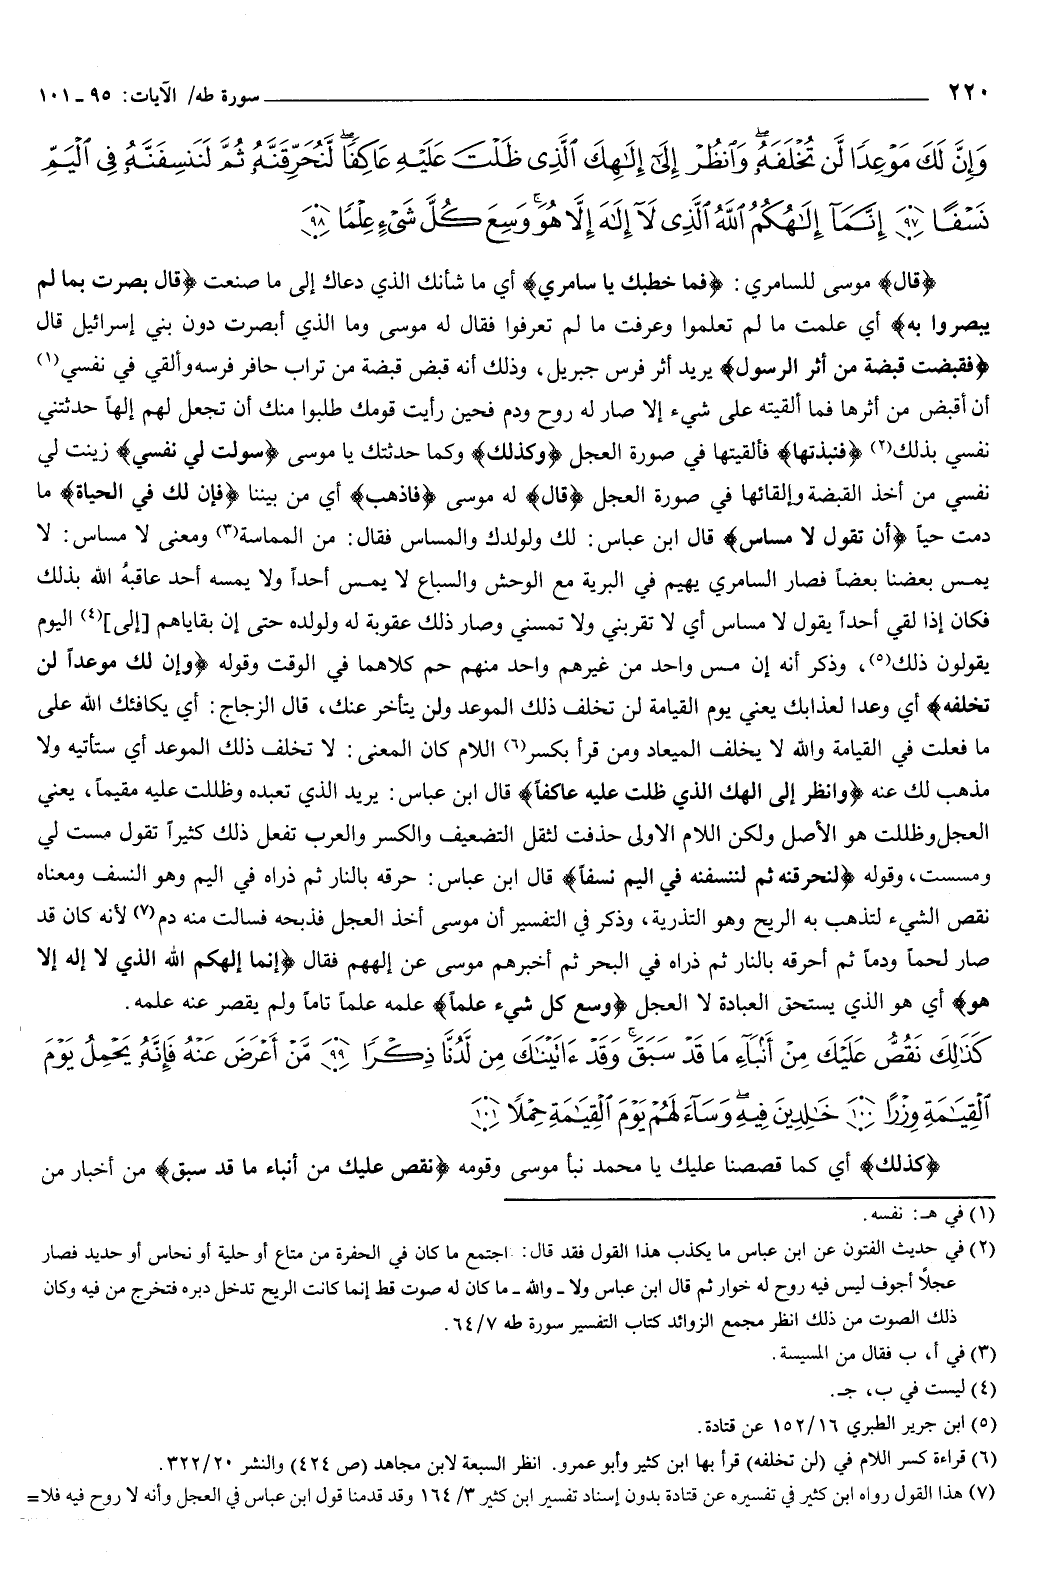 ٢٢٠ سورة طه/ الآيات: ٩٥ ـ ١٠١
وَإِنَّ لَكَ مَوْعِدًا لَّن تُخْلَفَهُۥ وَٱنظُرْ إِلَىٰٓ إِلَـٰهِكَ ٱلَّذِى ظَلْتَ عَلَيْهِ عَاكِفًا لَّنُحَرِّقَنَّهُۥ ثُمَّ لَنَنسِفَنَّهُۥ فِى ٱلْيَمِّ
نَسْفًا ﴿٩٧﴾ إِنَّمَآ إِلَـٰهُكُمُ ٱللَّهُ ٱلَّذِى لَآ إِلَـٰهَ إِلَّا هُوَ وَسِعَ كُلَّ شَىْءٍ عِلْمًا ﴿٩٨﴾
﴿قال﴾ موسى للسامري: ﴿فما خطبك يا سامري﴾ أي ما شأنك الذي دعاك إلى ما صنعت ﴿قال بصرت بما لم
يبصروا به﴾ أي علمت ما لم تعلموا وعرفت ما لم تعرفوا فقال له موسى وما الذي أبصرت دون بني إسرائيل قال
﴿فقبضت قبضة من أثر الرسول﴾ يريد أثر فرس جبريل، وذلك أنه قبض قبضة من تراب حافر فرسه وألقي في نفسي(١)
أن أقبض من أثرها فما ألقيته على شيء إلا صار له روح ودم فحين رأيت قومك طلبوا منك أن تجعل لهم إلهاً حدثتني
نفسي بذلك(٢) ﴿فنبذتها﴾ فألقيتها في صورة العجل ﴿وكذلك﴾ وكما حدثتك يا موسى ﴿سولت لي نفسي﴾ زينت لي
نفسي من أخذ القبضة وإلقائها في صورة العجل ﴿قال﴾ له موسى ﴿فاذهب﴾ أي من بيننا ﴿فإن لك في الحياة﴾ ما
دمت حياً ﴿أن تقول لا مساس﴾ قال ابن عباس: لك ولولدك والمساس فقال: من المماسة(٣) ومعنى لا مساس: لا
يمس بعضنا بعضاً فصار السامري يهيم في البرية مع الوحش والسباع لا يمس أحداً ولا يمسه أحد عاقبهُ الله بذلك
فكان إذا لقي أحداً يقول لا مساس أي لا تقربني ولا تمسني وصار ذلك عقوبة له ولولده حتى إن بقاياهم [إلى](٤) اليوم
يقولون ذلك(٥)، وذكر أنه إن مس واحد من غيرهم واحد منهم حم كلاهما في الوقت وقوله ﴿وإن لك موعداً لن
تخلفه﴾ أي وعدا لعذابك يعني يوم القيامة لن تخلف ذلك الموعد ولن يتأخر عنك، قال الزجاج: أي يكافئك الله على
ما فعلت في القيامة والله لا يخلف الميعاد ومن قرأ بكسر(٦) اللام كان المعنى: لا تخلف ذلك الموعد أي ستأتيه ولا
مذهب لك عنه ﴿وانظر إلى الهك الذي ظلت عليه عاكفاً﴾ قال ابن عباس: يريد الذي تعبده وظللت عليه مقيماً، يعني
العجل وظللت هو الأصل ولكن اللام الاولى حذفت لثقل التضعيف والكسر والعرب تفعل ذلك كثيراً تقول مست لي
ومسست، وقوله ﴿لنحرقنه ثم لننسفنه في اليم نسفاً﴾ قال ابن عباس: حرقه بالنار ثم ذراه في اليم وهو النسف ومعناه
نقص الشيء لتذهب به الريح وهو التذرية، وذكر في التفسير أن موسى أخذ العجل فذبحه فسالت منه دم(٧) لأنه كان قد
صار لحماً ودماً ثم أحرقه بالنار ثم ذراه في البحر ثم أخبرهم موسى عن إلههم فقال ﴿إنما إلهكم الله الذي لا إله إلا
هو﴾ أي هو الذي يستحق العبادة لا العجل ﴿وسع كل شيء علماً﴾ علمه علماً تاماً ولم يقصر عنه علمه.
كَذَٰلِكَ نَقُصُّ عَلَيْكَ مِنْ أَنۢبَآءِ مَا قَدْ سَبَقَ وَقَدْ ءَاتَيْنَـٰكَ مِن لَّدُنَّا ذِكْرًا ﴿٩٩﴾ مَّنْ أَعْرَضَ عَنْهُ فَإِنَّهُۥ يَحْمِلُ يَوْمَ
ٱلْقِيَـٰمَةِ وِزْرًا ﴿١٠٠﴾ خَـٰلِدِينَ فِيهِ وَسَآءَ لَهُمْ يَوْمَ ٱلْقِيَـٰمَةِ حِمْلًا ﴿١٠١﴾
﴿كذلك﴾ أي كما قصصنا عليك يا محمد نبأ موسى وقومه ﴿نقص عليك من أنباء ما قد سبق﴾ من أخبار من
(١) في هـ: نفسه.
(٢) في حديث الفتون عن ابن عباس ما يكذب هذا القول فقد قال: اجتمع ما كان في الحفرة من متاع أو حلية أو نحاس أو حديد فصار
عجلاً أجوف ليس فيه روح له خوار ثم قال ابن عباس ولا ـ والله ـ ما كان له صوت قط إنما كانت الريح تدخل دبره فتخرج من فيه وكان
ذلك الصوت من ذلك انظر مجمع الزوائد كتاب التفسير سورة طه ٦٤/٧.
(٣) في أ، ب فقال من المسيسة.
(٤) ليست في ب، جـ.
(٥) ابن جرير الطبري ١٥٢/١٦ عن قتادة.
(٦) قراءة كسر اللام في (لن تخلفه) قرأ بها ابن كثير وأبو عمرو. انظر السبعة لابن مجاهد (ص ٤٢٤) والنشر ٣٢٢/٢٠.
(٧) هذا القول رواه ابن كثير في تفسيره عن قتادة بدون إسناد تفسير ابن كثير ٣/ ١٦٤ وقد قدمنا قول ابن عباس في العجل وأنه لا روح فيه فلا=